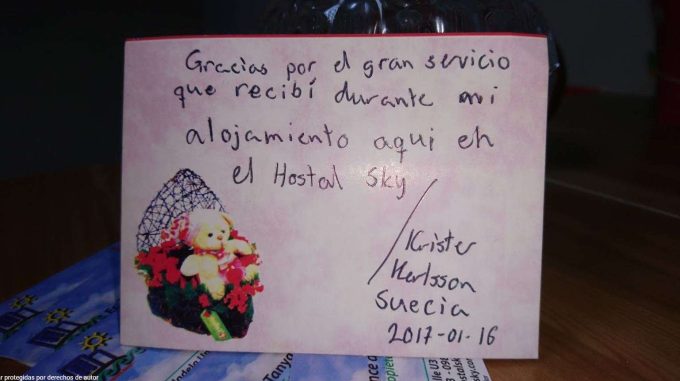 Gracias por el gran servicio
que recibí durante mi
alojamiento aqui en
el Hostal Sky
/Krister
Karlsson
Suecia
2017-01-16
Tanya
r protegidas por derechos de autor